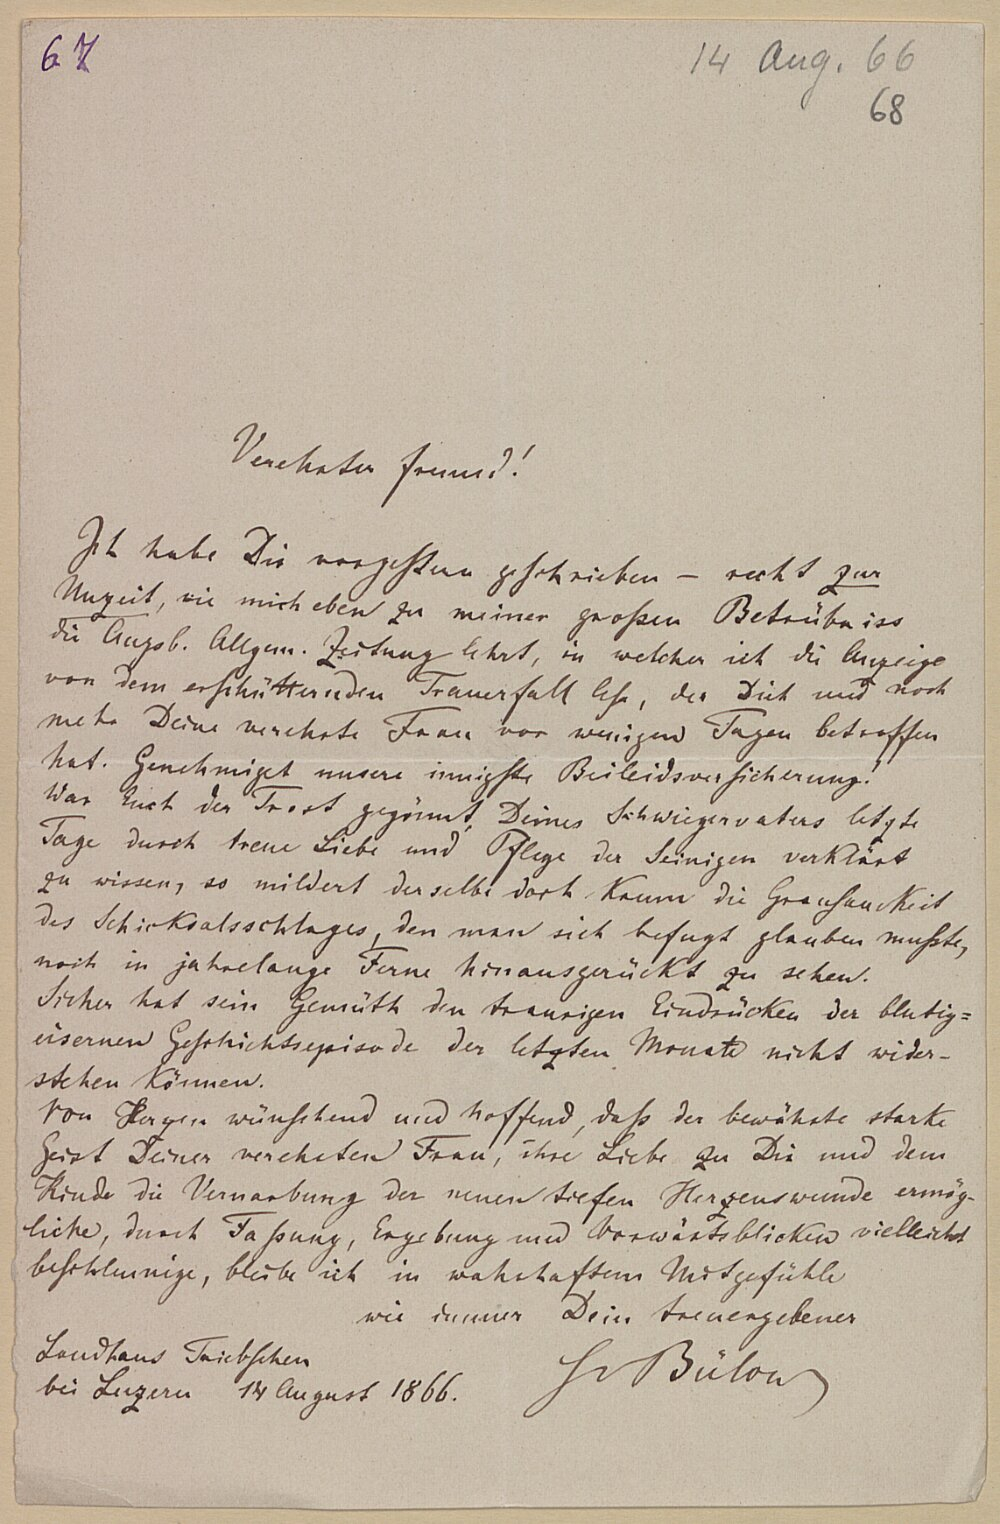 67
14 Aug. 66
68
Verehrter Freund!
Ich habe Dir vorgestern geschrieben — recht zur
Unzeit, wie mich eben zu meiner großen Betrübniss
die Augsb. Allgem. Zeitung lehrt, in welcher ich die Anzeige
von dem erschütternden Trauerfall lese, der Dich und noch
mehr Deine verehrte Frau vor wenigen Tagen betroffen
hat. Genehmiget unsere innigste Beileidsversicherung!
War Euch der Trost gegönnt, Deines Schwiegervaters letzte
Tage durch treue Liebe und Pflege der Seinigen verklärt
zu wissen, so mildert derselbe doch kaum die Grausamkeit
des Schicksalsschlages, den man sich befugt glauben mußte,
noch in jahrelange Ferne hinausgerückt zu sehen.
Sicher hat sein Gemüth den traurigen Eindrücken der blutig=
eisernen Geschichtsepisode der letzten Monate nicht wider-
stehen können.
Von Herzen wünschend und hoffend, daß der bewährte starke
Geist Deiner verehrten Frau, ihre Liebe zu Dir und dem
Kinde die Vernarbung der neuen tiefen Herzenswunde ermög-
liche, durch Faßung, Ergebung und Vorwärtsblicken vielleicht
beschleunige, bleibe ich in wahrhaftem Mitgefühle
wie immer Dein treuergebener
Landhaus Triebschen
bei Luzern 14 August 1866.
Hv Bülow